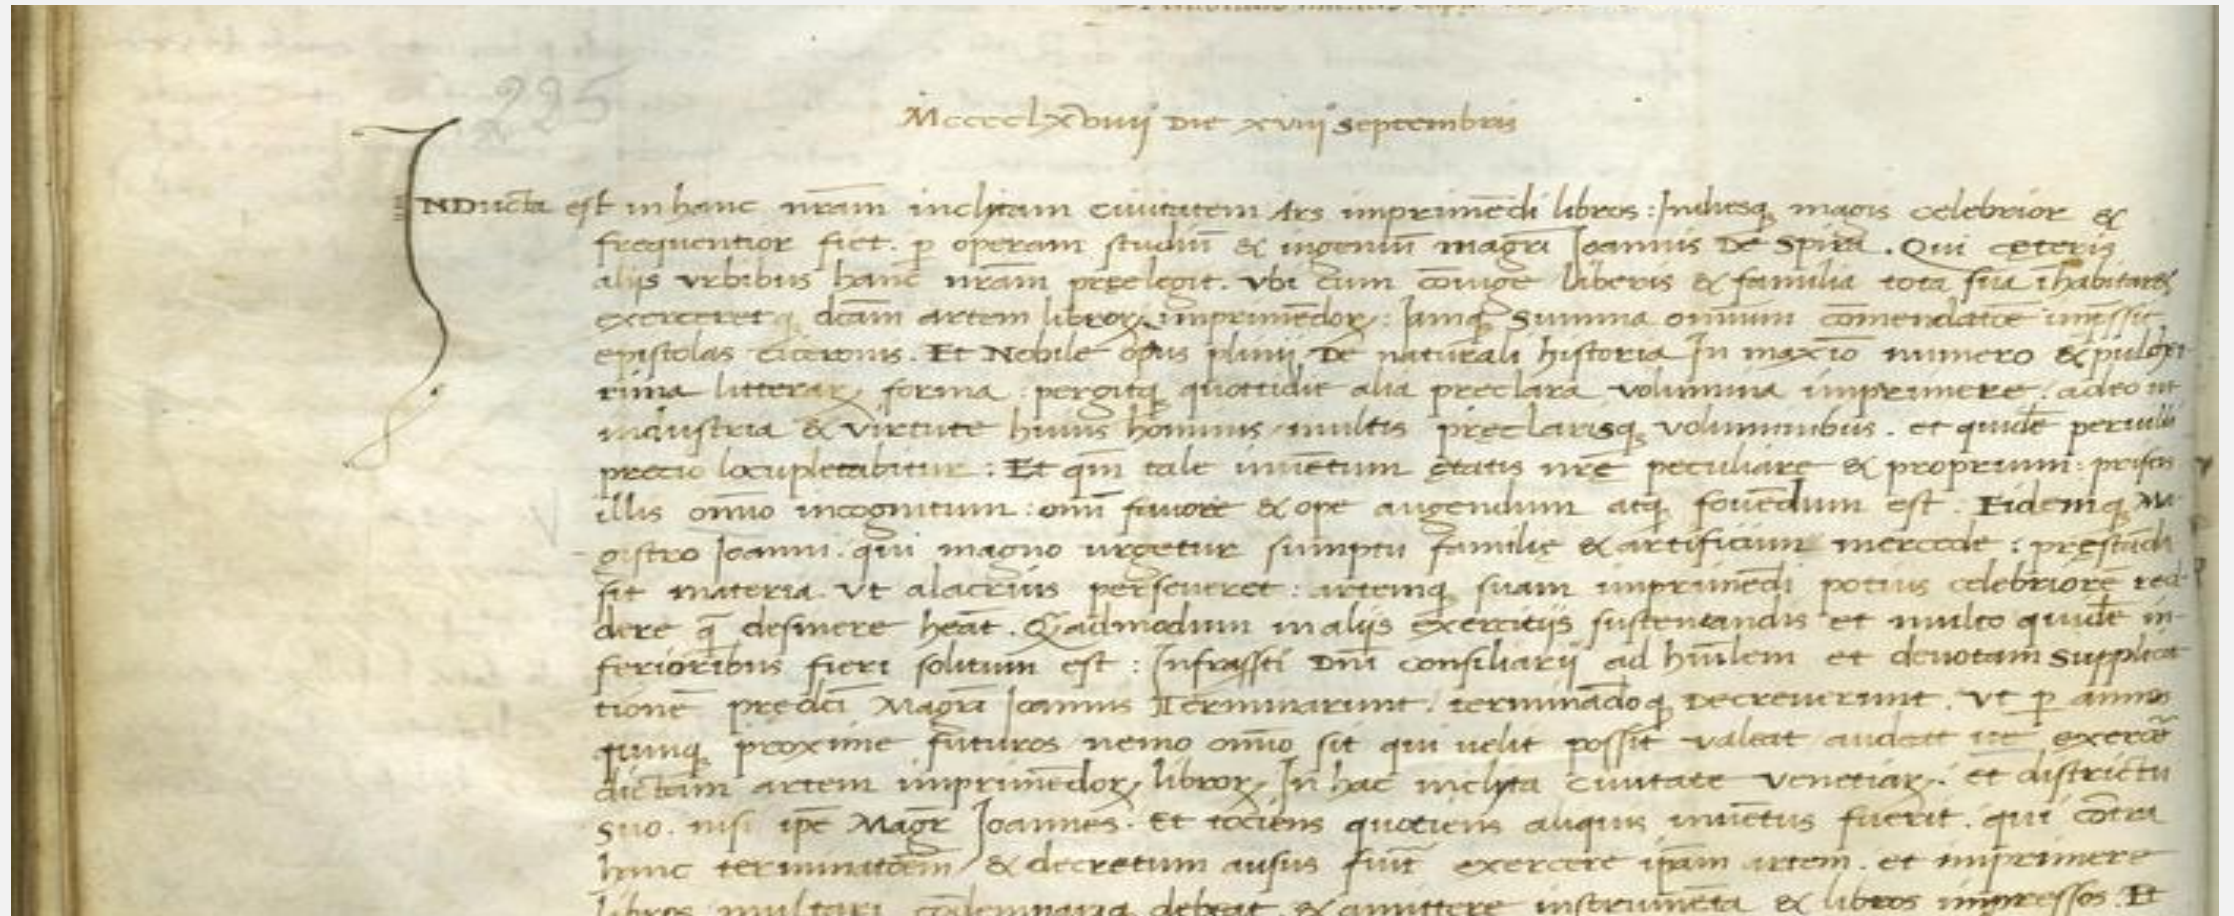 225
Mcccclxviiij Die xviij septembris
INDucta est in hanc nr̄am inclitam ciuitatem Ars imprimēdi libros: Indiesq; magis celebrior &
frequentior fiet. p̱ operam studiū & ingeniū magr̄i Ioannis De Spira. Qui cęteris
aliis vrbibus hanc̄ nr̄am pręelegit. vbi cum cōiuge liberis & familia tota sua īhabitaret
exerceretq; dc̄am artem libroꝝ imprimēdoꝝ: Iamq; summa omnium cōmendatiōe
epistolas Ciceronis. Et Nobile opus plinii De naturali historia In maxīo numero & pulcher-
rima litteraꝝ forma pergitq; quottidie alia preclara volumina imprimere. adeo ut
industria & virtute huius hominis multis preclarisq; voluminibus. et quidē perutili
precio locupletabitur: Et qm̄ tale inuētum ętatis nr̄ę peculiare & proprium: priscis
illis om̄io incognitum: omni fauore & ope augendum atq; fouēdum est. Eidemq; Ma-
gistro Ioanni. qui magno urgetur sumptu familię & artificum mercede: pręstāda
sit materia. vt alacrius perseueret: artemq; suam imprimēdi potius celebriorē red-
dere q̄ desinere heāt. Q̄admodum in aliis exercitiis sustentandis et multo quidē in-
ferioribus fieri solitum est: Infrascti Dn̄i consiliarij ad hūilem et deuotam supplica-
tionē predc̄i Magr̄i Ioannis Terminarunt. terminādoq; Decreuerunt. Vt p̱ annos
quinq; proxime futuros nemo om̄io sit qui uelit possit valeat audeat ue exercē
dictam artem imprimēdoꝝ libroꝝ In hac inclita Ciuitate Venetiaꝝ: et districtu
suo. nisi ip̄e Magr̄ Ioannes. Et tociens quotiens aliquis inuētus fuerit. qui cōtra
hanc terminatōem & decretum ausus fūit exercere ip̄am artem. et imprimere
libros multari cōdemnariq; debeat. & amittere instrumēta & libros impressos. Et